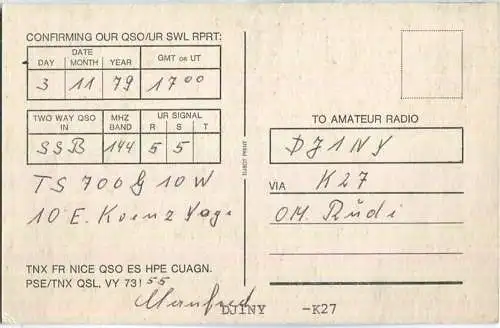 CONFIRMING OUR QSO/UR SWL RPRT:
DATE
DAY MONTH YEAR GMT OR UT
3 11 79 17 00
TWO WAY QSO IN MHZ BAND UR SIGNAL R S T
SSB 144 5 5
TS 700G 10W
10 E. Kreuz Yagi
TNX FR NICE QSO ES HPE CUAGN.
PSE/TNX QSL, VY 73! 55
Manfred
TO AMATEUR RADIO
DJ1NY
VIA K27
OM. Rüdi
DJ1NY -K27